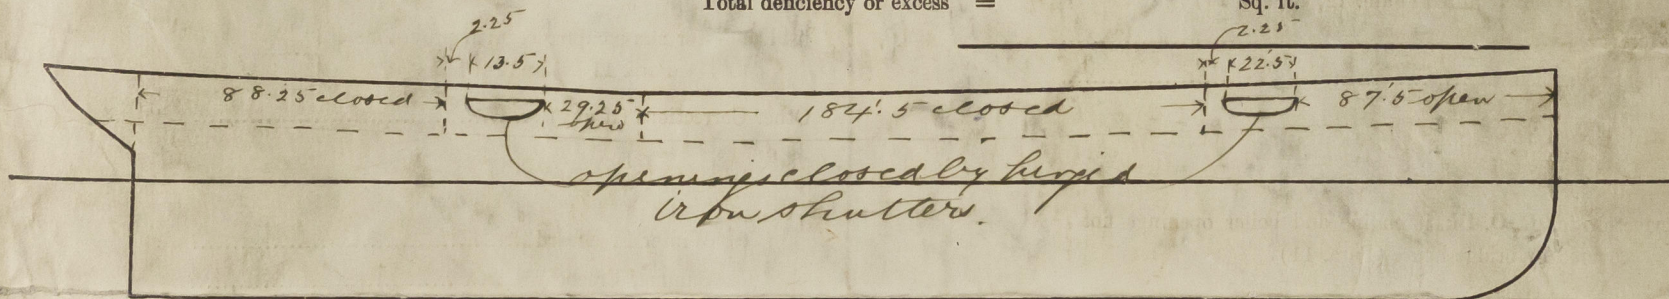 Total deficiency or excess = Sq. ft.
2.25 2.25
13.5 22.5
88.25 closed 29.25 open 184'.5 closed 87'.5 open
openings closed by hinged
iron shutters.